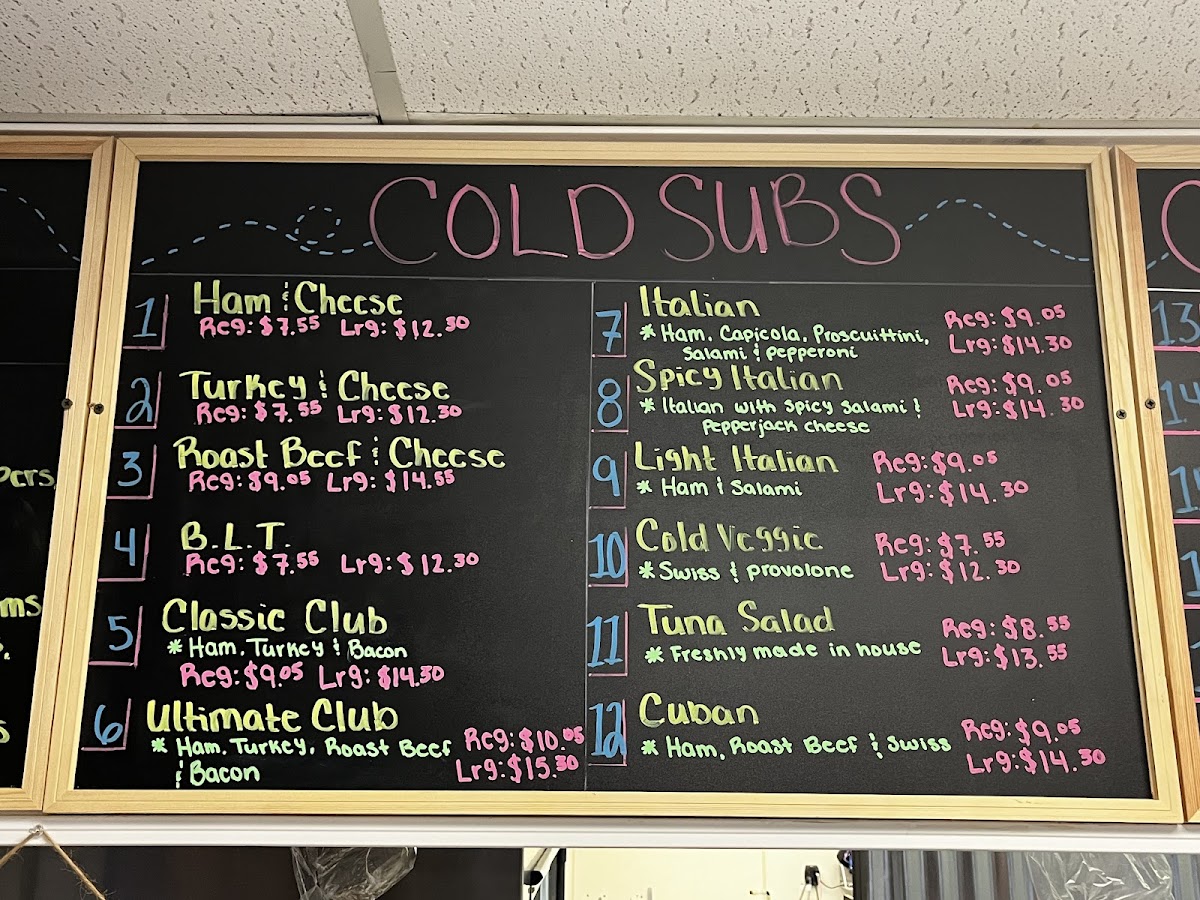 COLD SUBS
1 Ham & Cheese
Reg: $7.55 Lrg: $12.30
2 Turkey & Cheese
Reg: $7.55 Lrg: $12.30
3 Roast Beef & Cheese
Reg: $9.05 Lrg: $14.55
4 B.L.T.
Reg: $7.55 Lrg: $12.30
5 Classic Club
* Ham, Turkey & Bacon
Reg: $9.05 Lrg: $14.30
6 Ultimate Club
* Ham, Turkey, Roast Beef Reg: $10.05
& Bacon Lrg: $15.30
7 Italian Reg: $9.05
* Ham, Capicola, Proscuittini, Lrg: $14.30
Salami & pepperoni
8 Spicy Italian Reg: $9.05
* Italian with Spicy Salami & Lrg: $14.30
Pepperjack cheese
9 Light Italian Reg: $9.05
* Ham & Salami Lrg: $14.30
10 Cold Veggie Reg: $7.55
* Swiss & provolone Lrg: $12.30
11 Tuna Salad Reg: $8.55
* Freshly made in house Lrg: $13.55
12 Cuban Reg: $9.05
* Ham, Roast Beef & Swiss Lrg: $14.30
pers,
ms
13
14